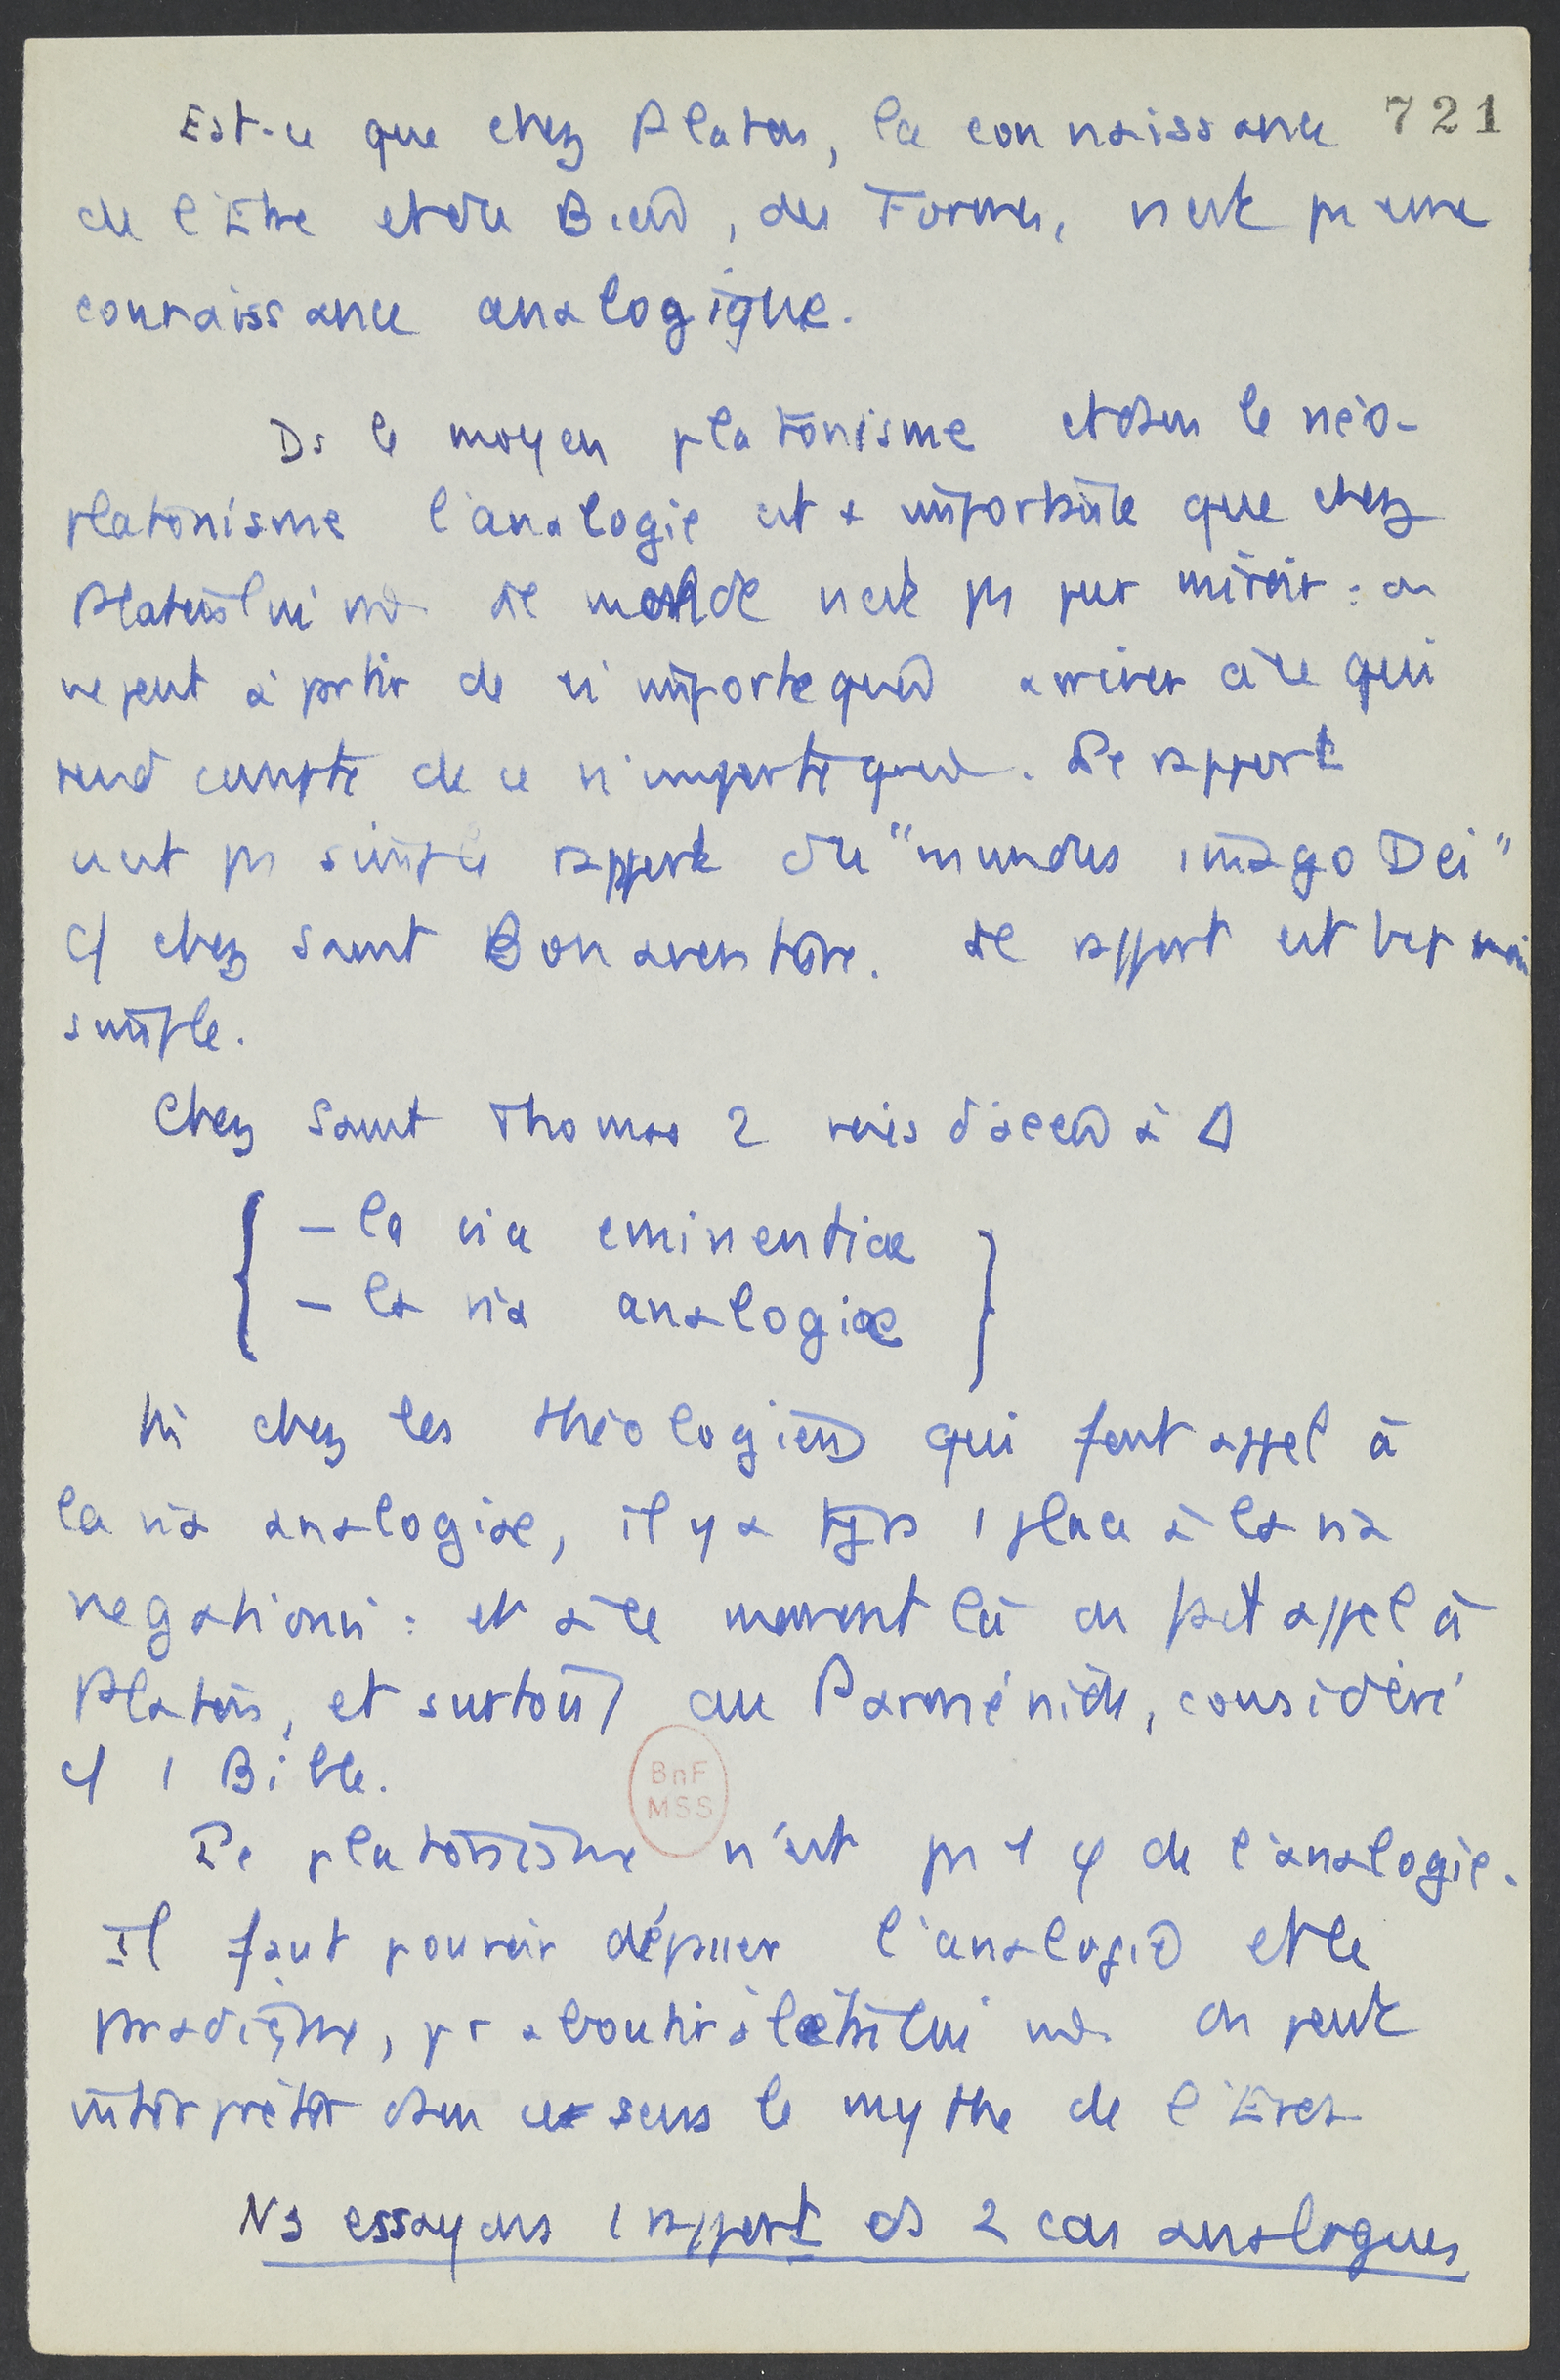 721
Est-ce que chez Platon, la connaissance
de l'Etre et du Bien, des Formes, n'est pas une
connaissance analogique.
Ds le moyen platonisme et dans le néo-
platonisme l'analogie est + importante que chez
Platon lui m̂. Le monde n'est pas pur miroir : on
ne peut à partir de n'importe quoi arriver à ce qui
rend compte de ce n'importe quoi. Le rapport
n'est pas simple rapport du "mundus imago Dei"
c/ chez Saint Bonaventure. Le rapport est bcp moins
simple.
Chez Saint Thomas 2 voies d'accès à Δ
{ – la via eminentiae
– la via analogiae }
Mais chez les théologiens qui font appel à
la via analogiae, il y a tjrs 1 place à la via
negationis : et à ce moment là on fait appel à
Platon, et surtout au Parménide, considéré
c/ 1 Bible.
BnF
MSS
Le platonisme n'est pas 1 φ de l'analogie.
Il faut pouvoir dépasser l'analogie et le
paradigme, pr aboutir à l'être lui m̂. On peut
interpréter dans ce sens le mythe de l'Eros
Ns essayons 1 rapport ds 2 cas analogues